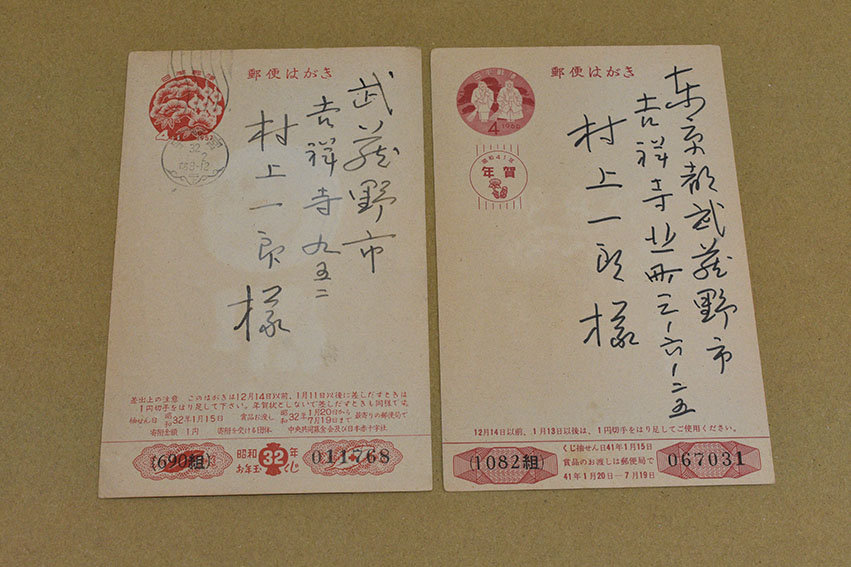 郵便はがき
日本郵便
武蔵野市
吉祥寺九五二
村上一郎様
32
差出上の注意 このはがきは12月14日以前、1月11日以後に差しだすときは
1円切手をはり足して下さい。年賀状としないで差しだすときも同様です
抽せん日 昭和32年1月15日 賞品お渡し 昭和32年1月20日から7月19日まで 最寄りの郵便局で
寄附金額 1円 寄附を受ける団体 中央共同募金会及び日本赤十字社
(690組)
昭和32年
お年玉くじ
011768
郵便はがき
4 1966
昭和41年
年賀
東京都武蔵野市
吉祥寺北町三ノ六ノ二五
村上一郎様
12月14日以前、1月13日以後は、1円切手をはり足してご使用ください。
(1082組)
くじ抽せん日41年1月15日
賞品のお渡しは郵便局で
41年1月20日—7月19日
067031